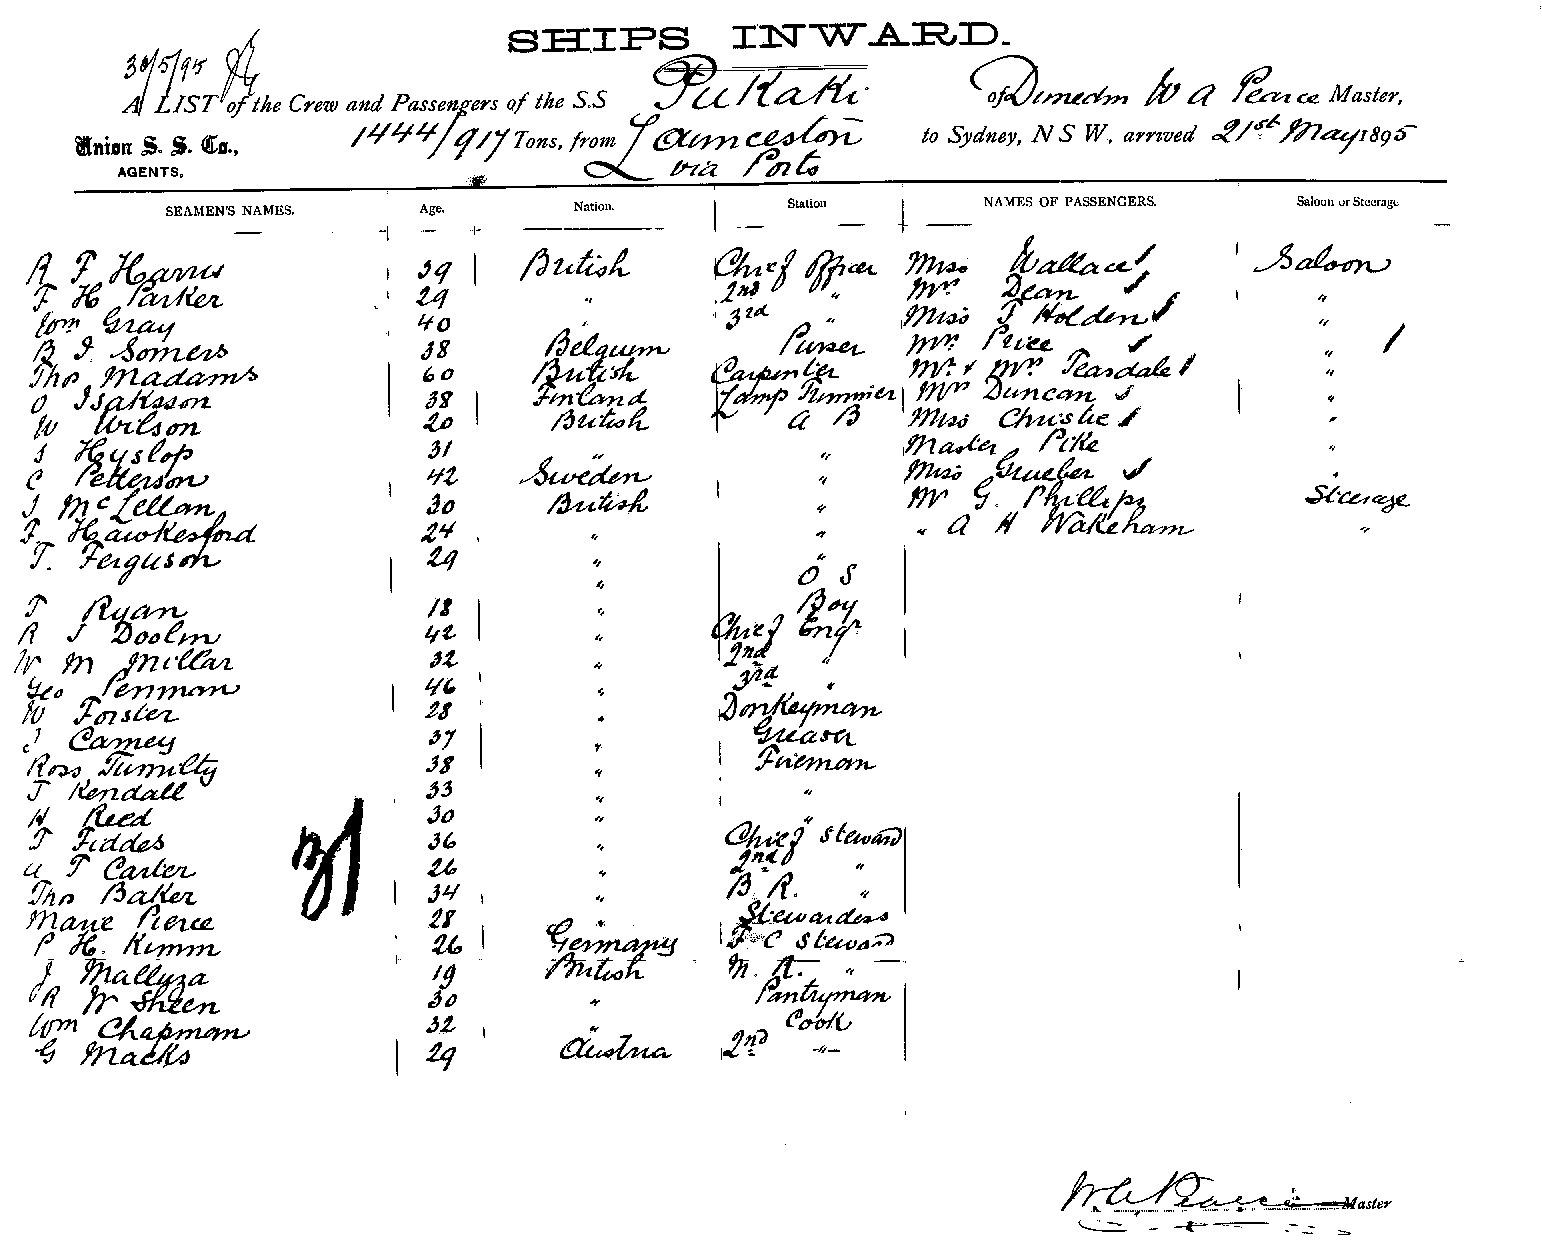 SHIPS INWARD.
30/5/95
A LIST of the Crew and Passengers of the S.S Pukaki of Dunedin W A Pearce Master,
Union S. S. Co., 1444/917 Tons, from Launceston to Sydney, N S W, arrived 21st May 1895
AGENTS, via Ports
SEAMEN'S NAMES. Age. Nation. Station NAMES OF PASSENGERS. Saloon or Steerage
R F Harris 39 British Chief Officer Miss Wallace Saloon
F H Parker 29 " 2nd " Mrs Dean "
Wm Gray 40 " 3rd " Miss T Holden "
B J. Somers 38 Belguim Purser Mr. Price "
Thos Madams 60 British Carpenter Mr. & Mrs Teasdale "
O Isaksson 38 Finland Lamp Trimmer Mrs Duncan "
W Wilson 20 British A B Miss Christie "
S Hyslop 31 " " Master Pike "
C Petterson 42 Sweden " Miss Grueber "
J McLellan 30 British " Mr G. Phillips Steerage
F. Hawkesford 24 " " " A H Wakeham "
T. Ferguson 29 " "
" O S
T Ryan 18 " Boy
R J Doolin 42 " Chief Engr
W M Millar 32 " 2nd "
Geo Penman 46 " 3rd "
W Forster 28 " Donkeyman
J Carney 37 " Greaser
Ross Tumilty 38 " Fireman
J Kendall 33 " "
H Reed 30 " "
T Fiddes 36 " Chief Steward
A T Carter 26 " 2nd "
Thos Baker 34 " B R. "
Marie Pierce 28 " Stewardess
P H. Kimm 26 Germany F C Steward
J Mallyza 19 British M. R. "
R W Sheen 30 " Pantryman
Wm Chapman 32 " Cook
G Macks 29 Austria 2nd "
31
W. A. Pearce Master